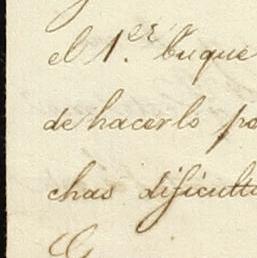 el 1.er buque
de hacerlo po
chas dificulta